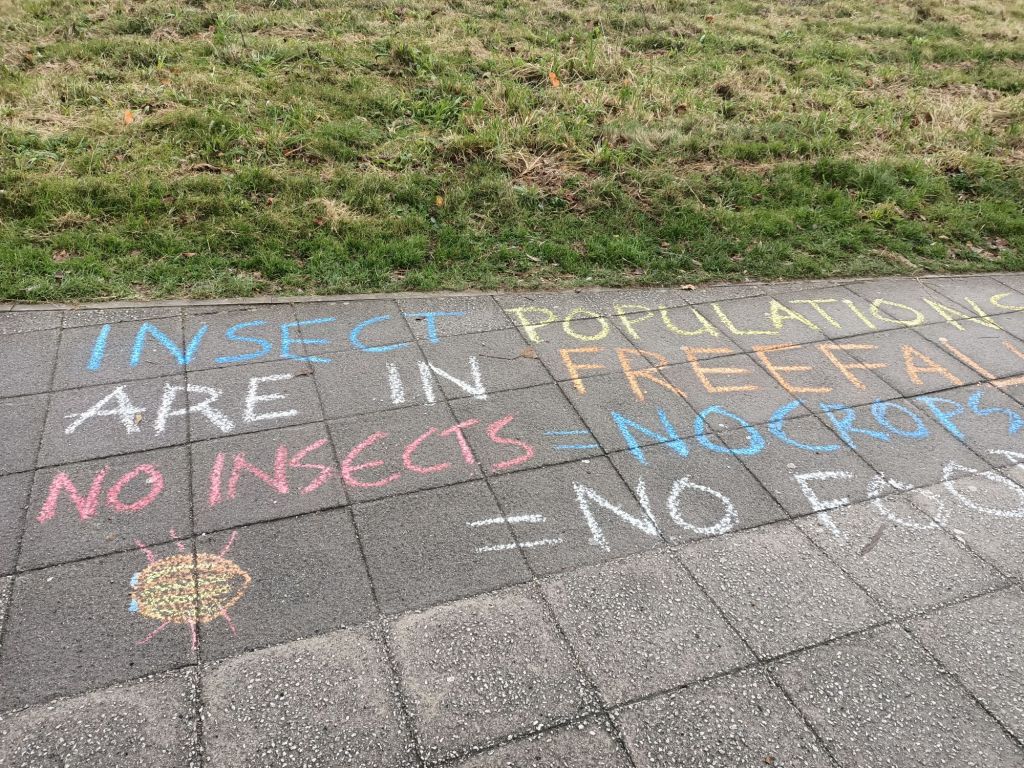 INSECT POPULATIONS
ARE IN FREEFALL
NO INSECTS = NO CROPS
= NO FOO